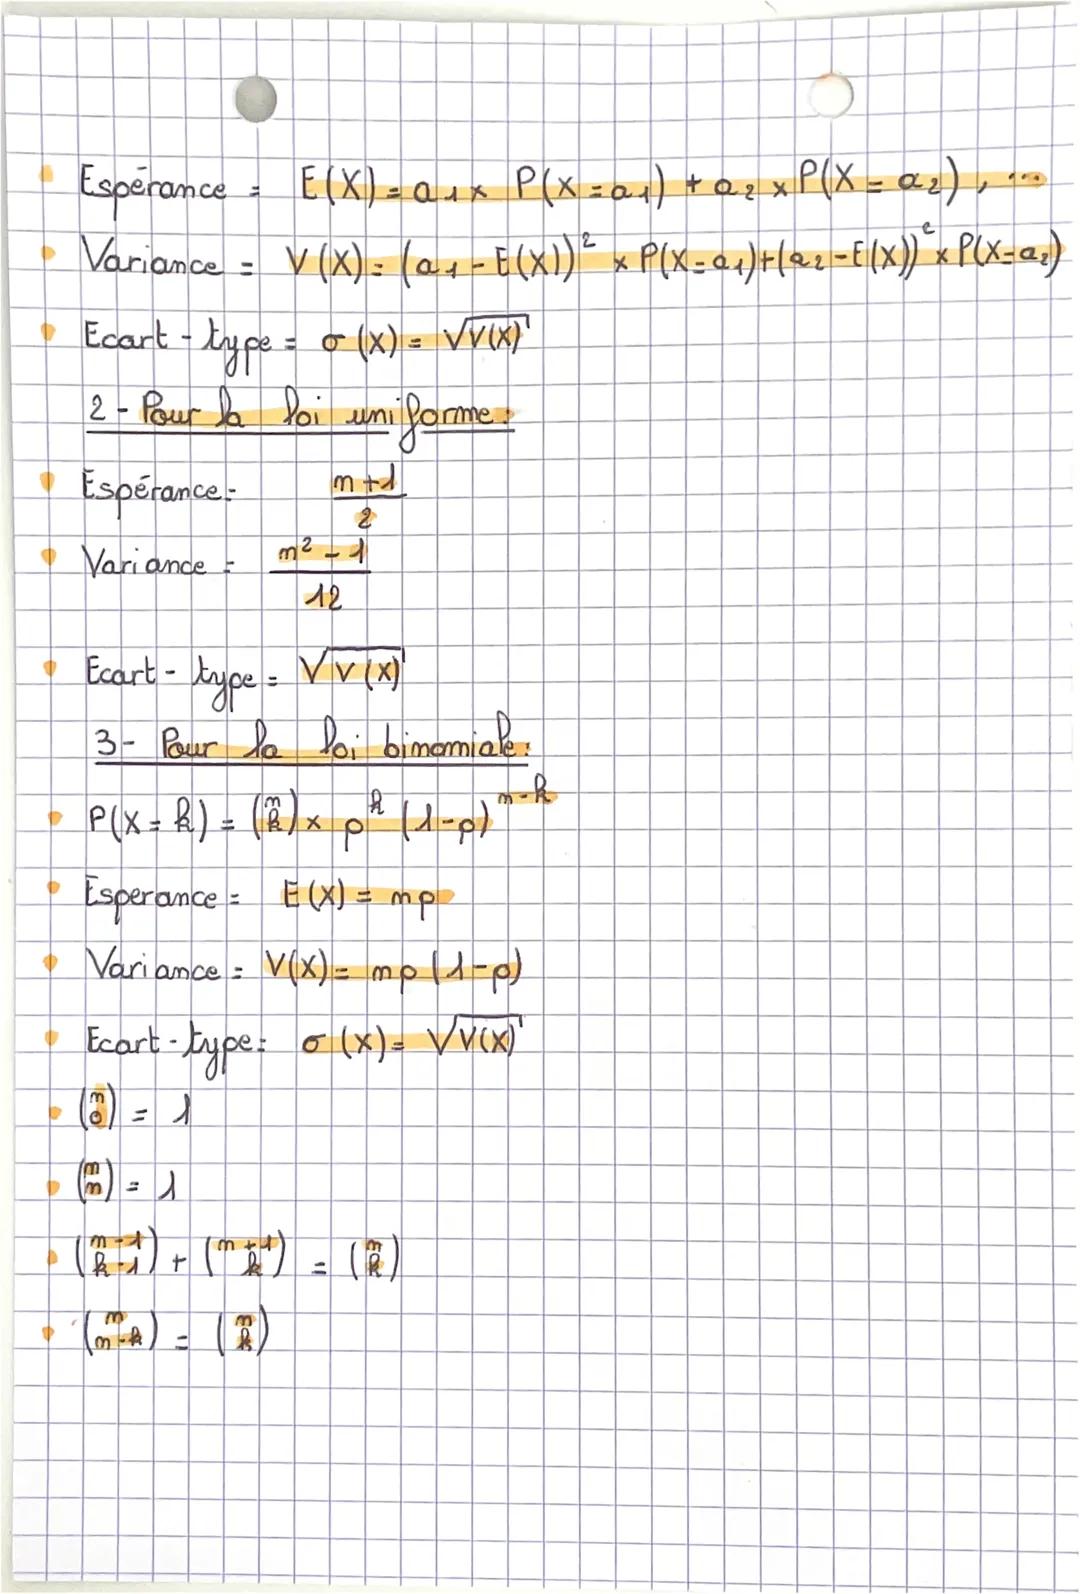 Espérance = E(X) = a1 x P(X = a1) + a2 x P(X = a2), ...
Variance = V(X) = (a1 - E(X))² x P(X = a1) + (a2 - E(X))² x P(X = a2)
Ecart - type = σ(X) = √V(X)
2 - Pour la loi uniforme :
Espérance = n+1
2
Variance = n² - 1
12
Ecart - type = √V(X)
3 - Pour la loi binomiale :
P(X = k) = (n k) x p^k (1-p)^n-k
Esperance = E(X) = np
Variance = V(X) = np(1-p)
Ecart - type = σ(X) = √V(X)
(n 0) = 1
(n n) = 1
(n-1 k-1) + (n+1 k) = (n k)
(n n-k) = (n k)